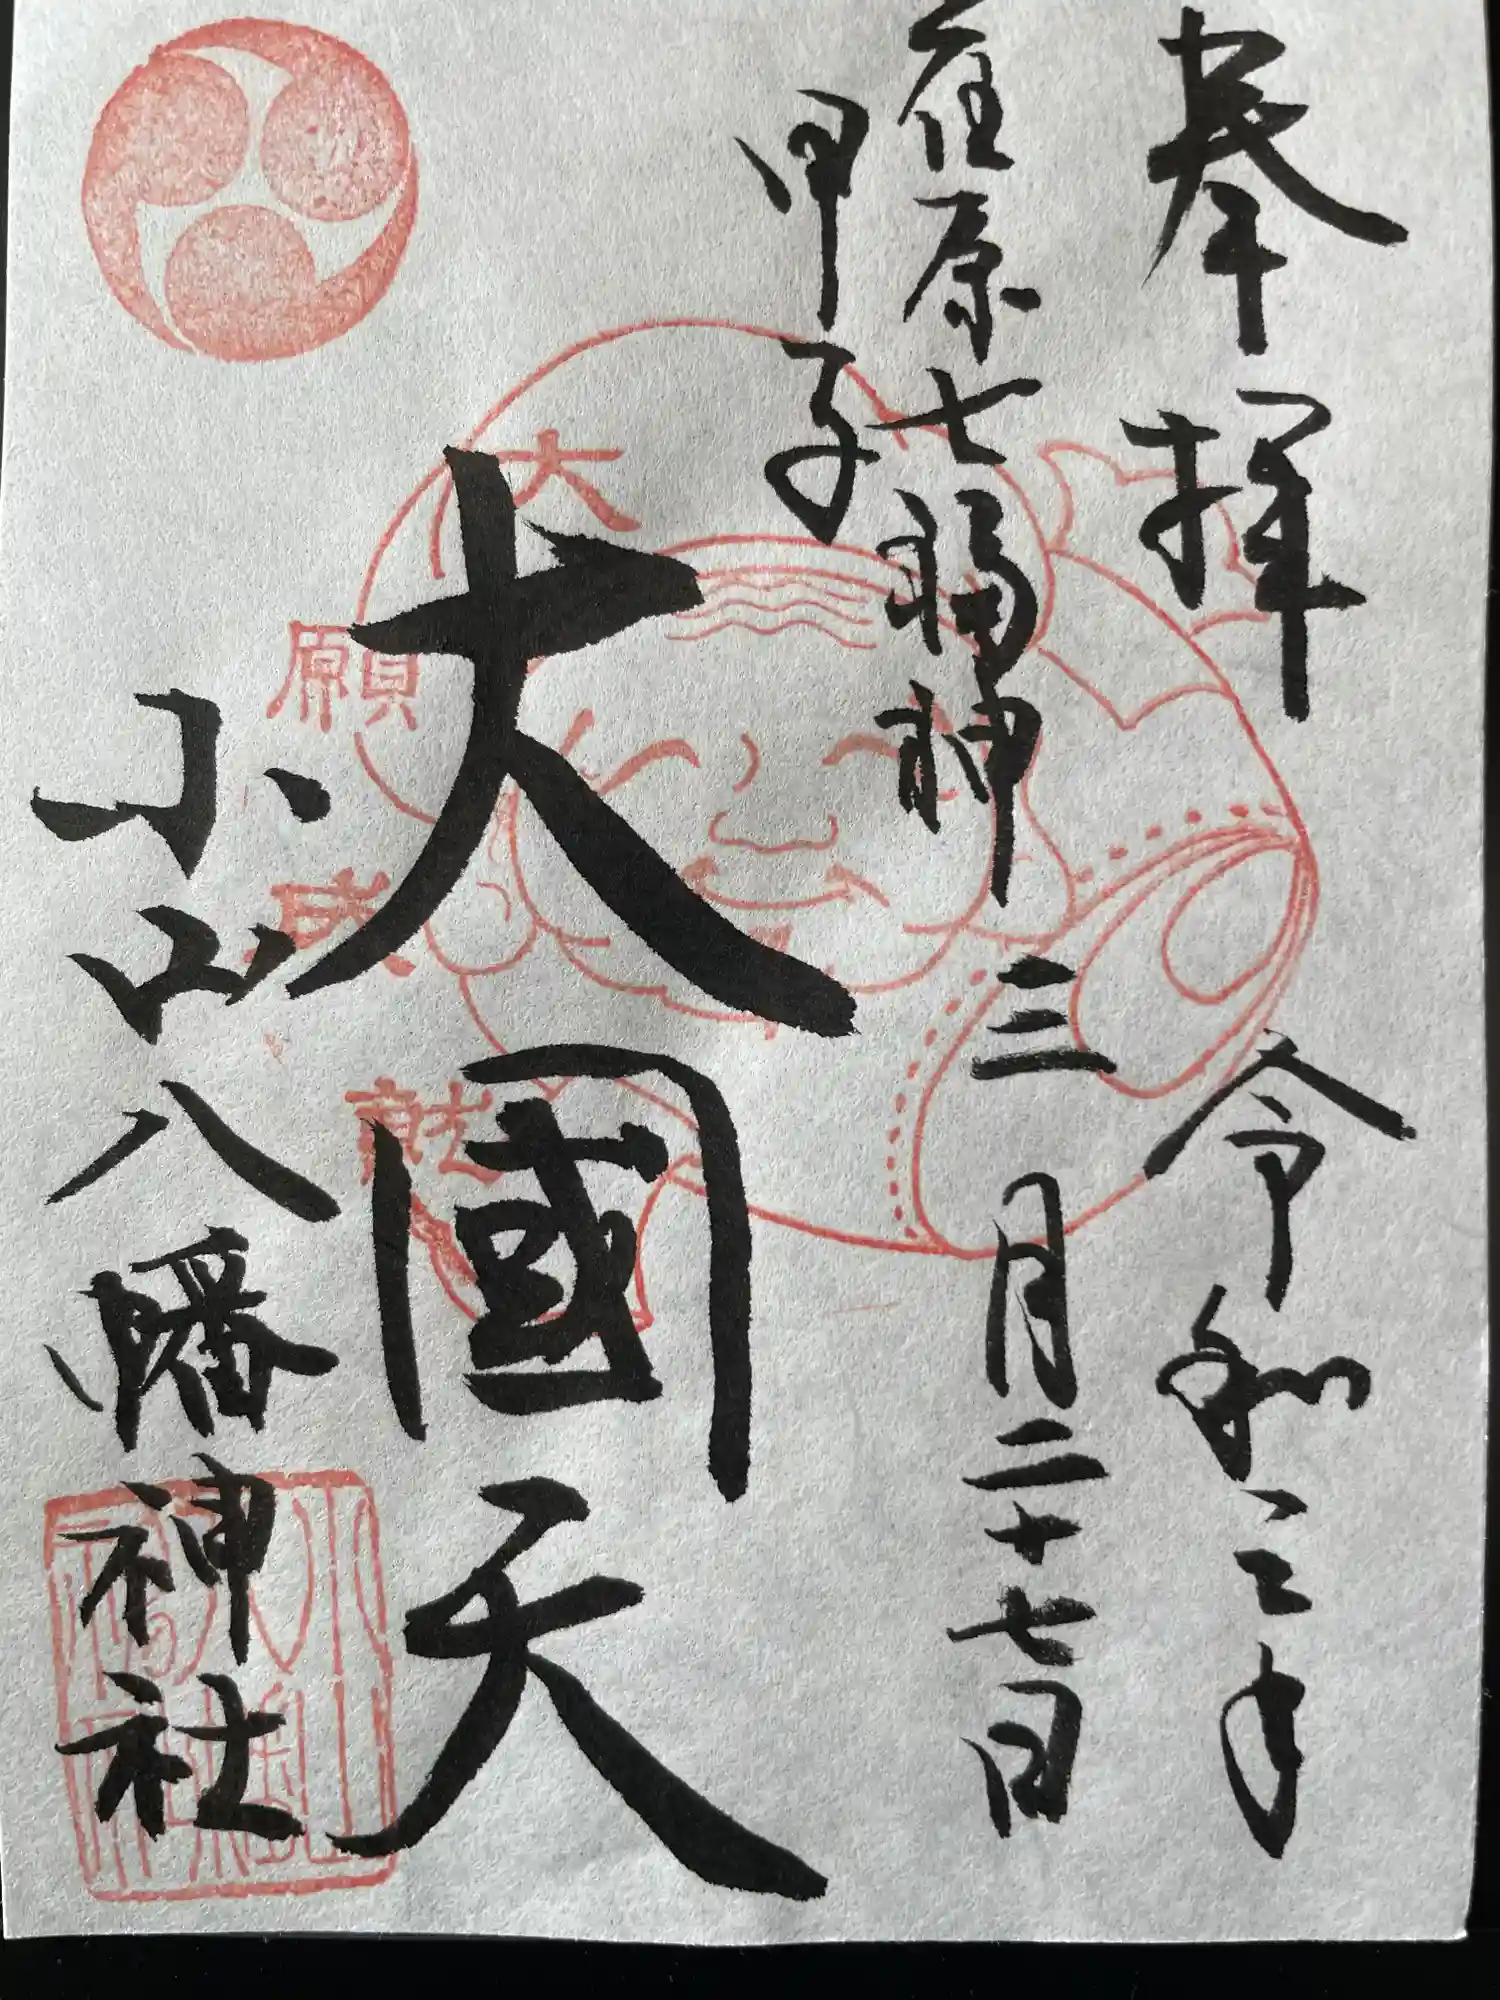 奉拝
令和三年
三月二十七日
荏原七福神
甲子
大國天
小山八幡神社
大願成就